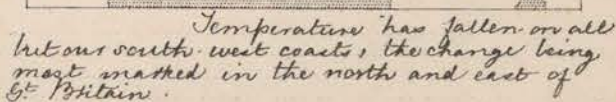 Temperature has fallen on all
but our south-west coasts, the change being
most marked in the north and east of
Gt. Britain.